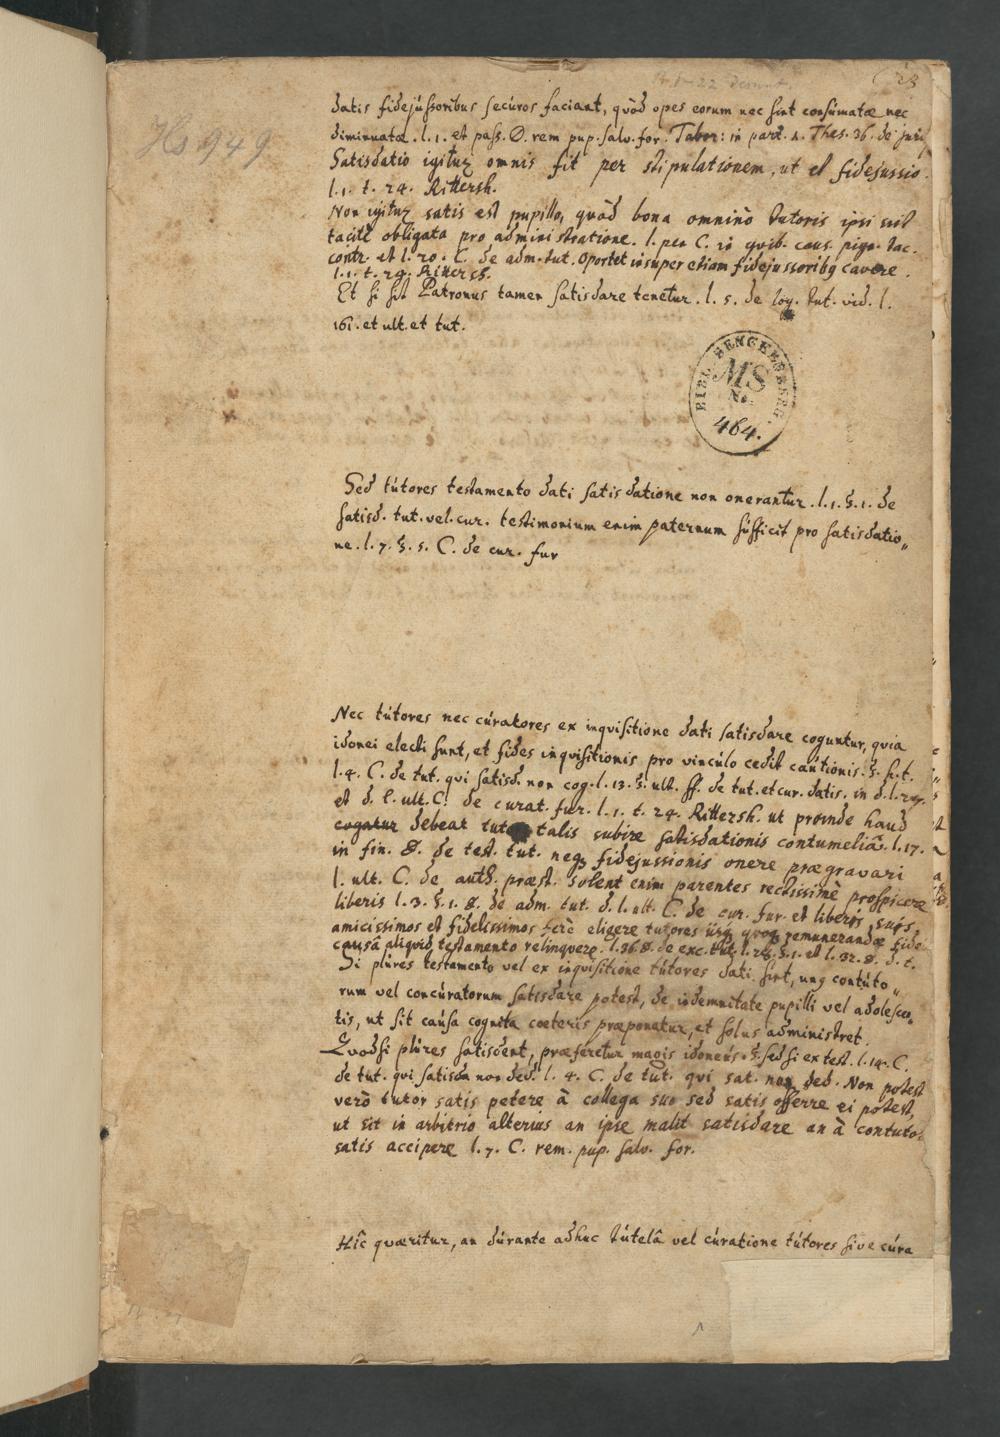 Hs 949
23
datis fidejussoribus securos faciant, quòd opes eorum nec sint consumatæ nec
diminuatæ. l. 1. et pass. D. rem pup. salv. for. Tabor: in part. 2. Thes. 36. de juri
Satisdatio igitur omnis fit per stipulationem, ut et fidejussio.
l. 1. t. 24. Rittersh.
Non igitur satis est pupillo, quòd bona omnino tutoris ipsi sint
tacitè obligata pro administratione. l. pen C. in quib. caus. pign. tac.
contr. et l. 20. C. de adm. tut. Oportet insuper etiam fidejussoribq cavere.
l. 1. t. 24. Rittersh.
Et si sit Patronus tamen satisdare tenetur. l. 5. de leg. tut. vid. l.
161. et ult. et tut.
BIBL. SENCKENBERG.
MS
No.
464.
Sed tútores testamento dati satisdatione non onerantur. l. 1. §. 1. de
satisd. tut. vel. cur. testimonium enim paternum sufficit pro satisdatio„
ne. l. 7. §. 5. C. de cur. fur
Nec tútores nec cúratores ex inquisitione dati satisdare coguntur, quia
idonei electi sunt, et fides inquisitionis pro vinculo cedit cautionis. §. h. t.
l. 4. C. de tut. qui satisd. non cog. l. 13. §. ult. ff. de tut. et cur. datis. in d. l.
et d. l. ult. C. de curat. fur. l. 1. t. 24. Rittersh. ut proinde haud
cogatur debeat tut talis subire satisdationis contumeliã. l. 17.
in fin. D. de test. tut. neq fidejussionis onere prægravari
l. ult. C. de auth. præst. Solent enim parentes rectissimè prospicere
liberis l. 3. §. 1. D. de adm. tut. d. l. ult. C. de cur. fur. et liberis suis
amicissimos et fidelissimos ferè eligere tutores iisq quoq remunerandæ fidei
causâ aliquid testamento relinquere. l. 36 D. de exc. tut. l. 28. §. 1. et l. 32. D. d. t.
Si plúres testamento vel ex inquisitione tútores dati sint, unq contúto„
rum vel concúratorum satisdare potest, de indemnitate pupilli vel adolescen„
tis, ut sit caúsa cognita cœteris præponatur, et solus administret.
Quodsi plúres satisdent, præferetur magis idoneús. §. sed si ex test. l. 14. C.
de tut. qui satisda non ded. l. 4. C. de tut. qui sat. non ded. Non potest
verò tutor satis petere à collega suo sed satis offerre ei potest,
ut sit in arbitrio alterius an ipse malit satisdare an à contuto
satis accipere l. 7. C. rem. pup. salv. for.
Hîc quæritur, an dúrante adhuc tútelâ vel cúratione tútores sive cúra